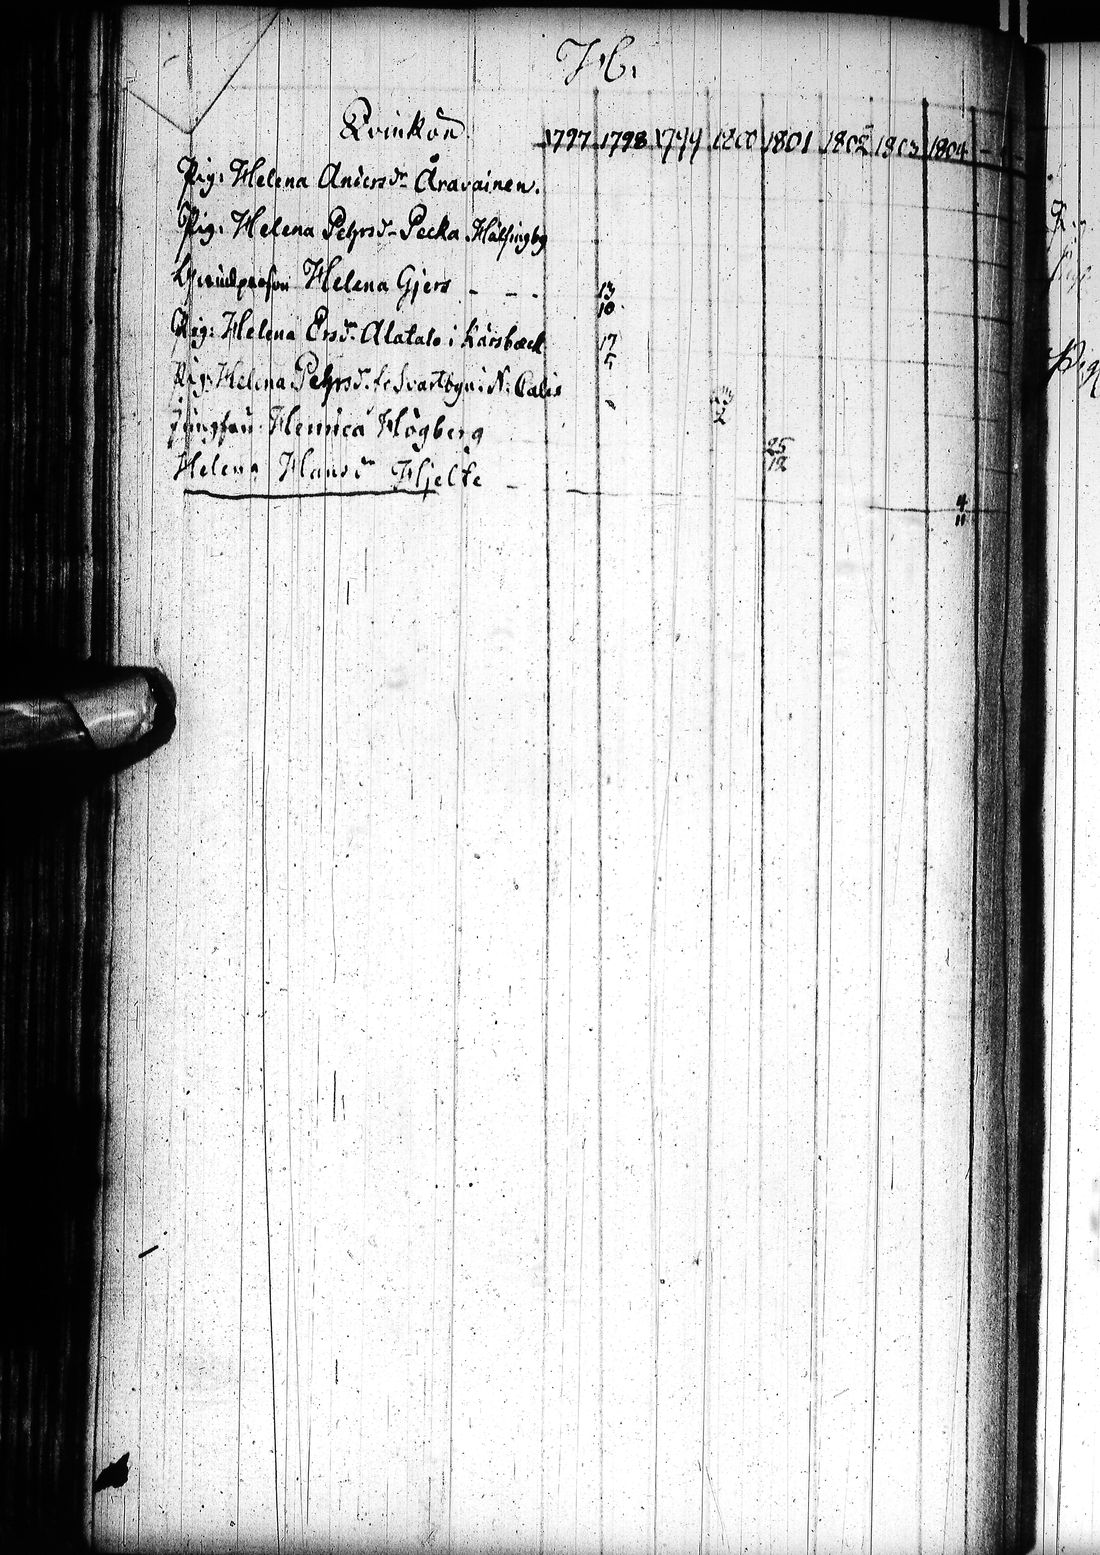 H.
Qvinkön 1797 1798 1799 1800 1801 1802 1803 1804
Pig. Helena Andersdr Åravainen.
Pig. Helena Pehrsdr Pecka Hälsingby
Helena Gjers - - - 13/10
Pig: Helena Ersdr Alatalo i Karsbäck 17/5
Pig. Helena Pehrsdr fr Svartbyn i N: Calix
Jungfru Henrica Högberg 25/12
Helena Hansdr Hjelte - 4/11